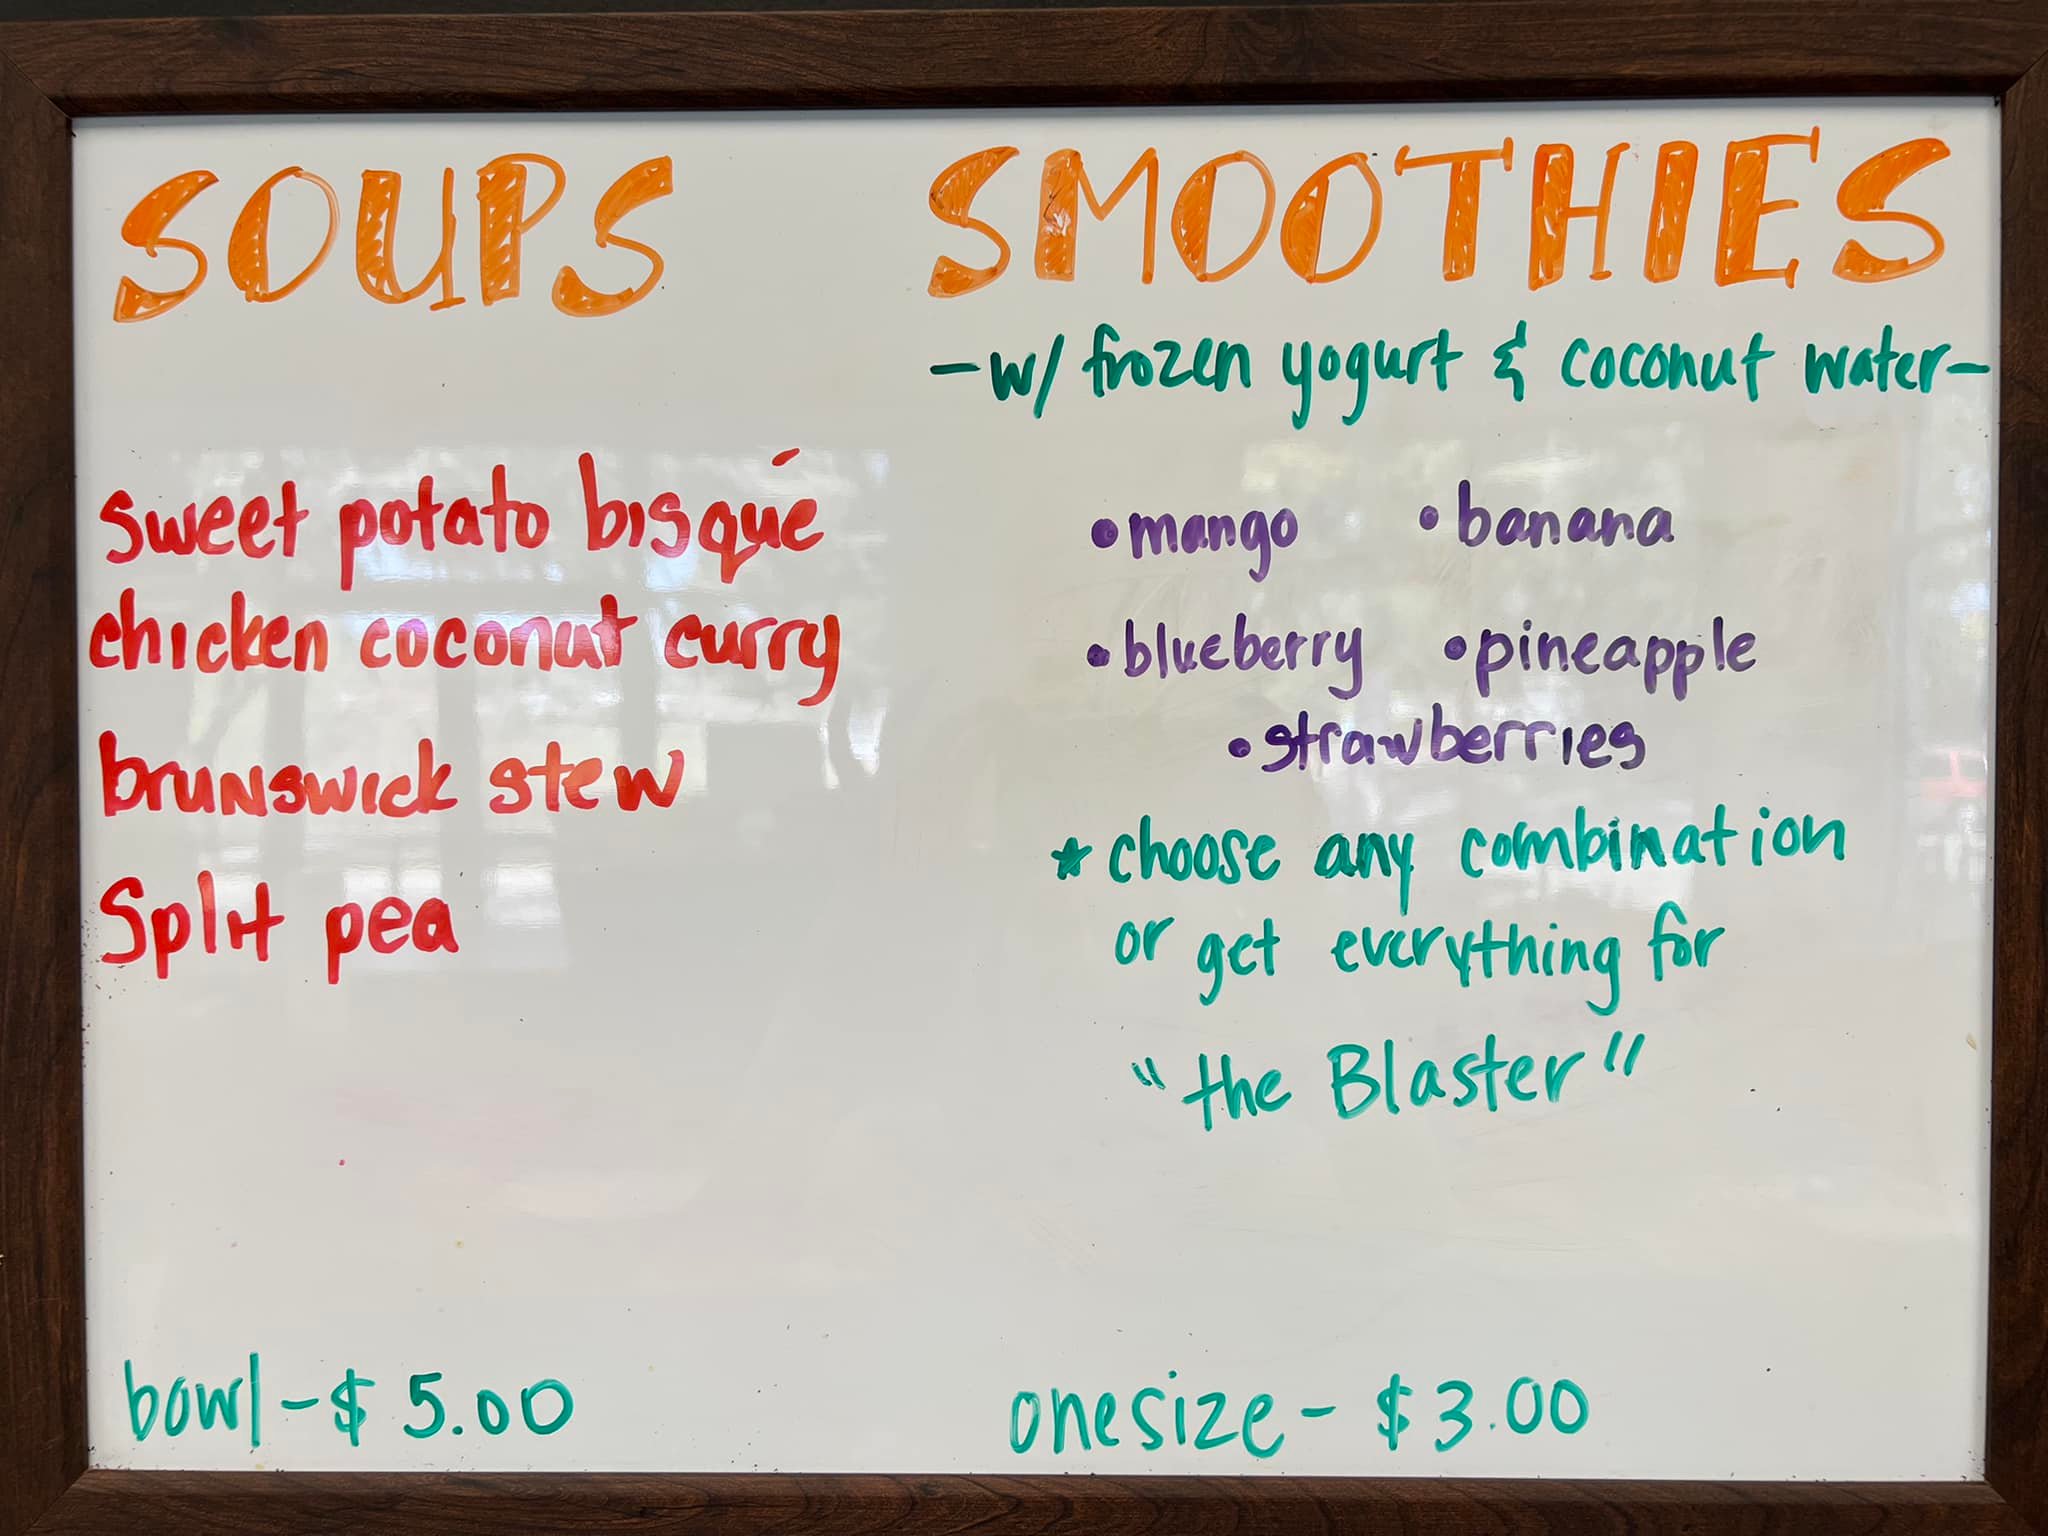 SOUPS
sweet potato bisqué
chicken coconut curry
brunswick stew
Split pea
bowl - $5.00
SMOOTHIES
- w/ frozen yogurt & coconut water -
• mango • banana
• blueberry • pineapple
• strawberries
* choose any combination
or get everything for
"the Blaster"
one size - $3.00